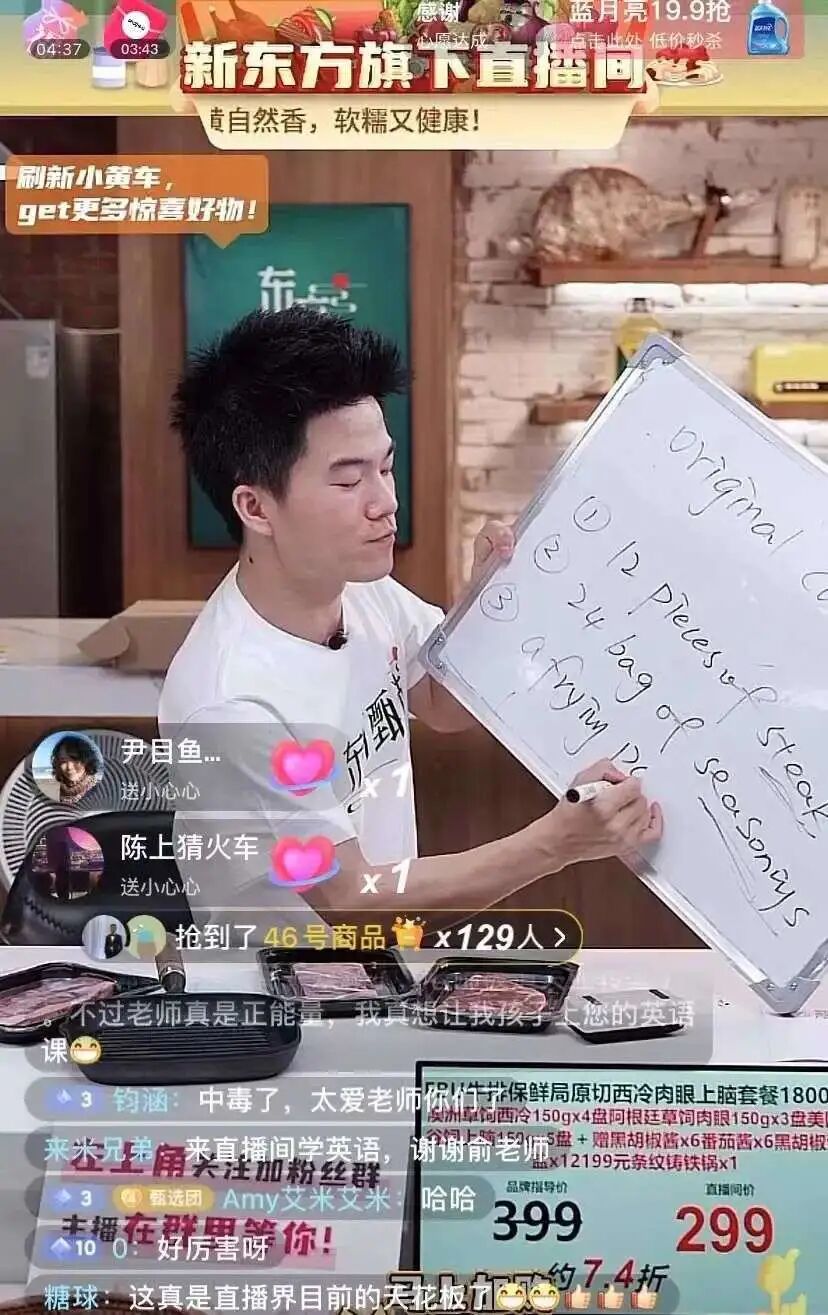 04:37
03:43
感谢
心愿达成
蓝月亮19.9抢
点击此处 低价秒杀
新东方旗下直播间
黄自然香，软糯又健康！
刷新小黄车，
get更多惊喜好物！
东方
original
① 12 pieces of steak
② 24 bag of seasonings
③ a frying pa
东方甄
尹目鱼...
送小心心
x 1
陈上猜火车
送小心心
x 1
抢到了 46号商品 x129人 >
。不过老师真是正能量，我真想让我孩子上您的英语
课😁
3 钧涵：中毒了，太爱老师你们了
来米兄弟：来直播间学英语，谢谢俞老师
3 甄选团 Amy艾米艾米：哈哈
10 0：好厉害呀
糖球：这真是直播界目前的天花板了😁😁👍👍👍
左上角关注加粉丝群
主播在群里等你！
牛排保鲜局原切西冷肉眼上脑套餐1800
澳洲草饲西冷150gx4盘阿根廷草饲肉眼150gx3盘美国
谷饲上脑150gx5盘 + 赠黑胡椒酱x6番茄酱x6黑胡椒
盐x12199元条纹铸铁锅x1
品牌指导价
399
直播间价
299
约7.4折